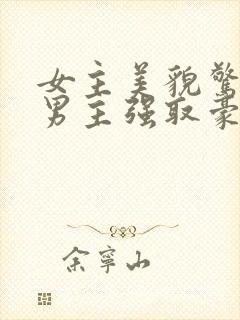 女主美貌驚
男主强取豪
余寧山